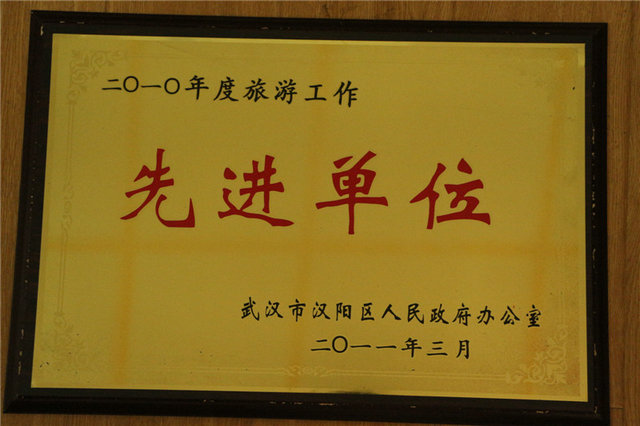 二〇一〇年度旅游工作
先进单位
武汉市汉阳区人民政府办公室
二〇一一年三月